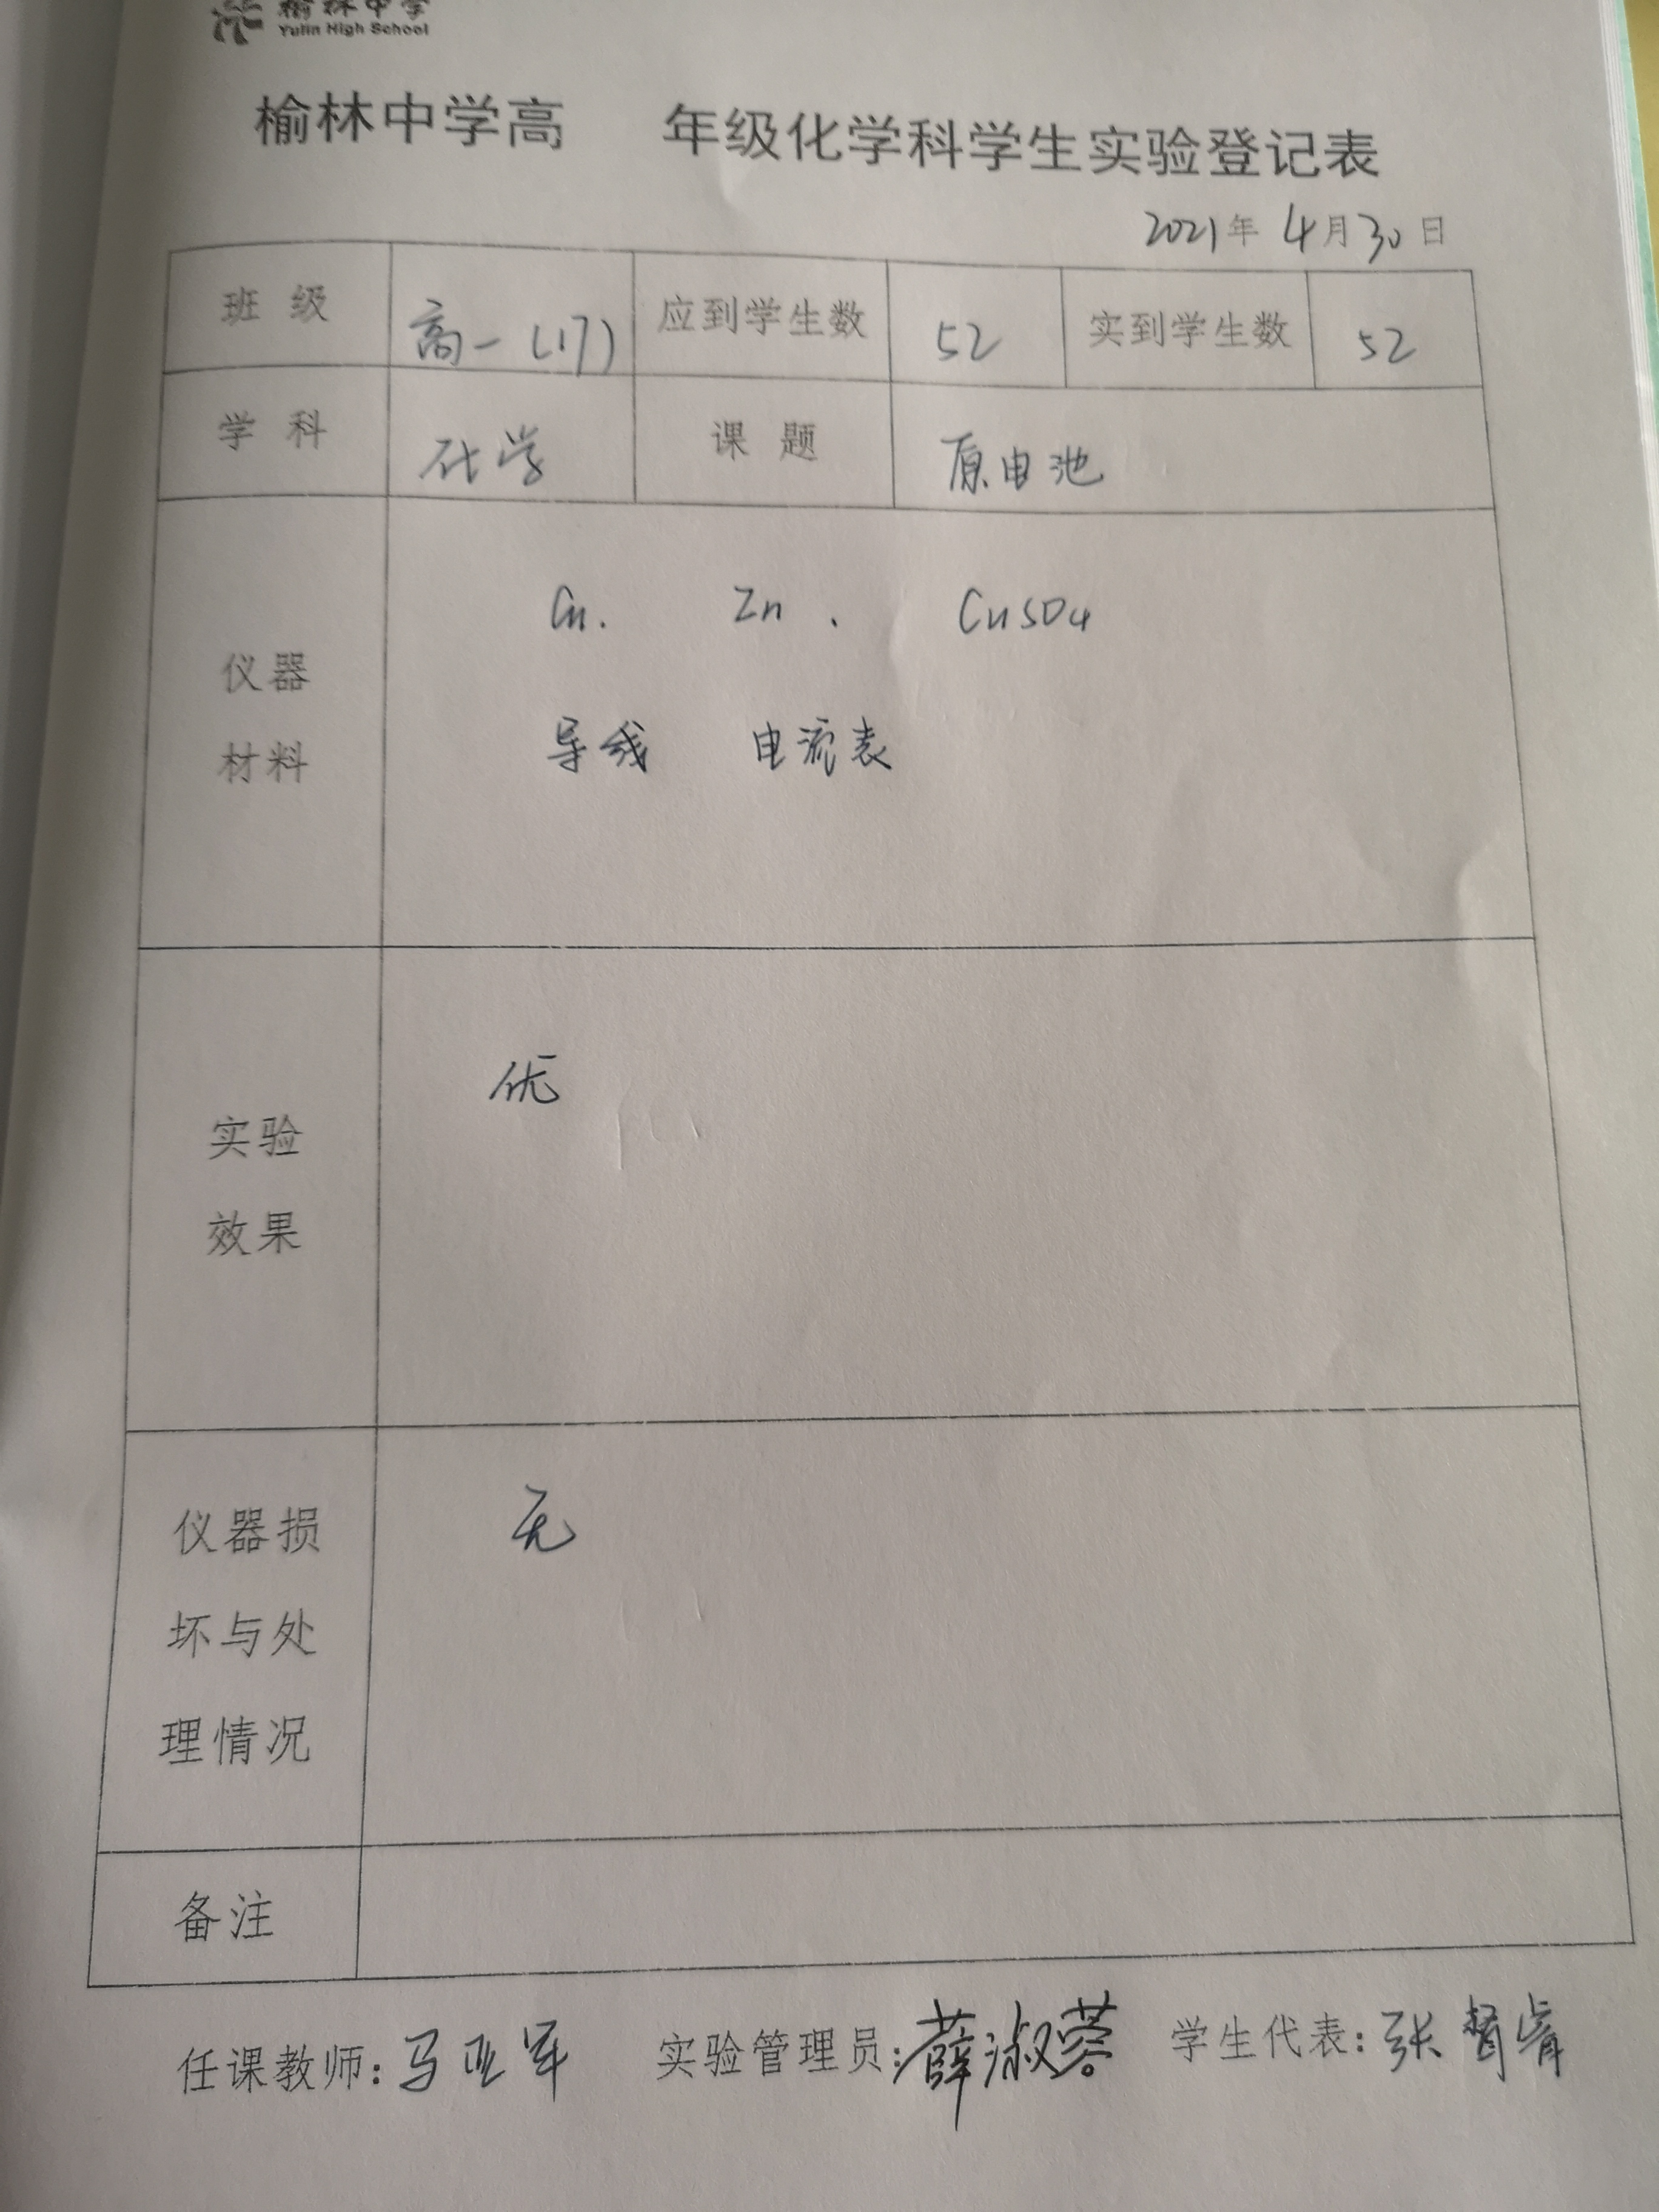 榆林中学
Yulin High School
榆林中学高 年级化学科学生实验登记表
2021年 4月30日
班 级 高一(17) 应到学生数 52 实到学生数 52
学 科 化学 课 题 原电池
仪器
材料
Cu. Zn . CuSO4
导线 电流表
实验
效果
优
仪器损
坏与处
理情况
无
备注
任课教师:马亚军 实验管理员:薛淑蓉 学生代表:张